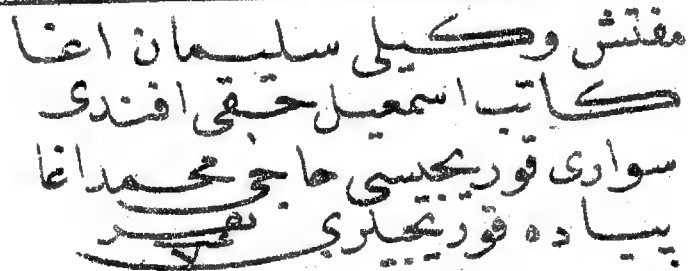 مفتش وكیلی سلیمان اغا
كاتب اسمعیل حقی افندی
سواری قوریجیسی حاجی محمد اغا
پیاده قوریجیلری نفر ٧